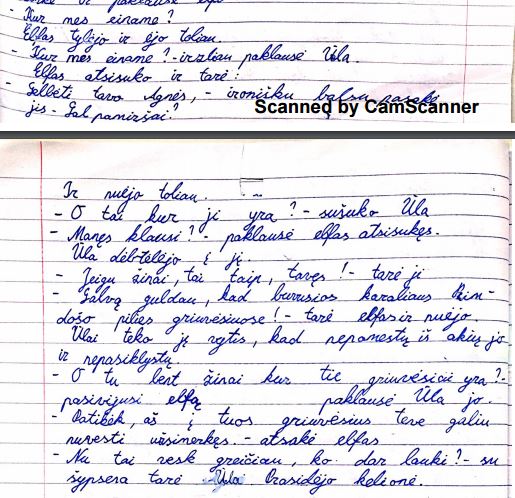 - Kur mes einame?
Elfas tylėjo ir ėjo toliau.
- Kur mes einame? - irzliau paklausė Ūla.
Elfas atsisuko ir tarė:
- Gelbėti tavo Agnės, - ironišku balsu pasakė
jis - Gal pamiršai?
Scanned by CamScanner
Ir nuėjo toliau.
- O tai kur ji yra? - sušuko Ūla
- Manęs klausi? - paklausė elfas atsisukęs.
Ūla dėbtelėjo į jį.
- Jeigu žinai, tai taip, tavęs! - tarė ji
- Galvą guldau, kad buvusios karaliaus
došo pilies griuvėsiuose! - tarė elfas ir nuėjo.
Ūlai teko jį vytis, kad nepamestų iš akių jo
ir nepasiklystų.
- O tu bent žinai kur tie griuvėsiai yra? -
pasivijusi elfą paklausė Ūla jo.
- Patikėk, aš į tuos griuvėsius tave galiu
nuvesti užsimerkęs. - atsakė elfas
- Na tai vesk greičiau, ko dar lauki? - su
šypsena tarė Ūla Prasidėjo kelionė.